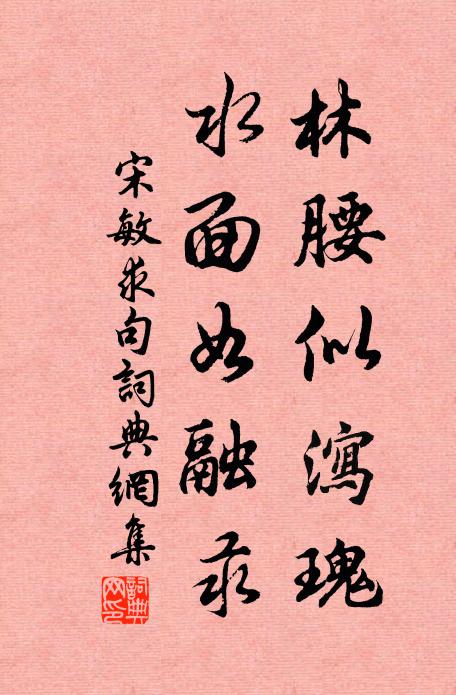 林腰似瀉瑰
水面如融汞
宋敏求句詞典網集
詞典
网印